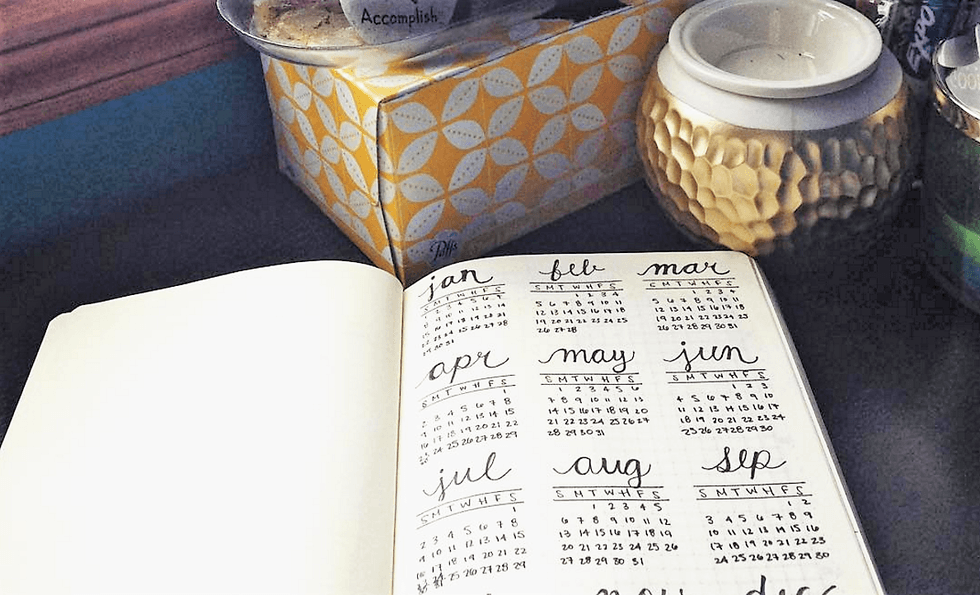 Accomplish
Puffs
jan
S M T W H F S
1 2 3 4 5 6 7
8 9 10 11 12 13 14
15 16 17 18 19 20 21
22 23 24 25 26 27 28
29 30 31
feb
S M T W H F S
1 2 3 4
5 6 7 8 9 10 11
12 13 14 15 16 17 18
19 20 21 22 23 24 25
26 27 28
mar
S M T W H F S
1 2 3 4
5 6 7 8 9 10 11
12 13 14 15 16 17 18
19 20 21 22 23 24 25
26 27 28 29 30 31
apr
S M T W H F S
1
2 3 4 5 6 7 8
9 10 11 12 13 14 15
16 17 18 19 20 21 22
23 24 25 26 27 28 29
30
may
S M T W H F S
1 2 3 4 5 6
7 8 9 10 11 12 13
14 15 16 17 18 19 20
21 22 23 24 25 26 27
28 29 30 31
jun
S M T W H F S
1 2 3
4 5 6 7 8 9 10
11 12 13 14 15 16 17
18 19 20 21 22 23 24
25 26 27 28 29 30
jul
S M T W H F S
1
2 3 4 5 6 7 8
9 10 11 12 13 14 15
16 17 18 19 20 21 22
23 24 25 26 27 28 29
30 31
aug
S M T W H F S
1 2 3 4 5
6 7 8 9 10 11 12
13 14 15 16 17 18 19
20 21 22 23 24 25 26
27 28 29 30 31
sep
S M T W H F S
1 2
3 4 5 6 7 8 9
10 11 12 13 14 15 16
17 18 19 20 21 22 23
24 25 26 27 28 29 30
nov
dec